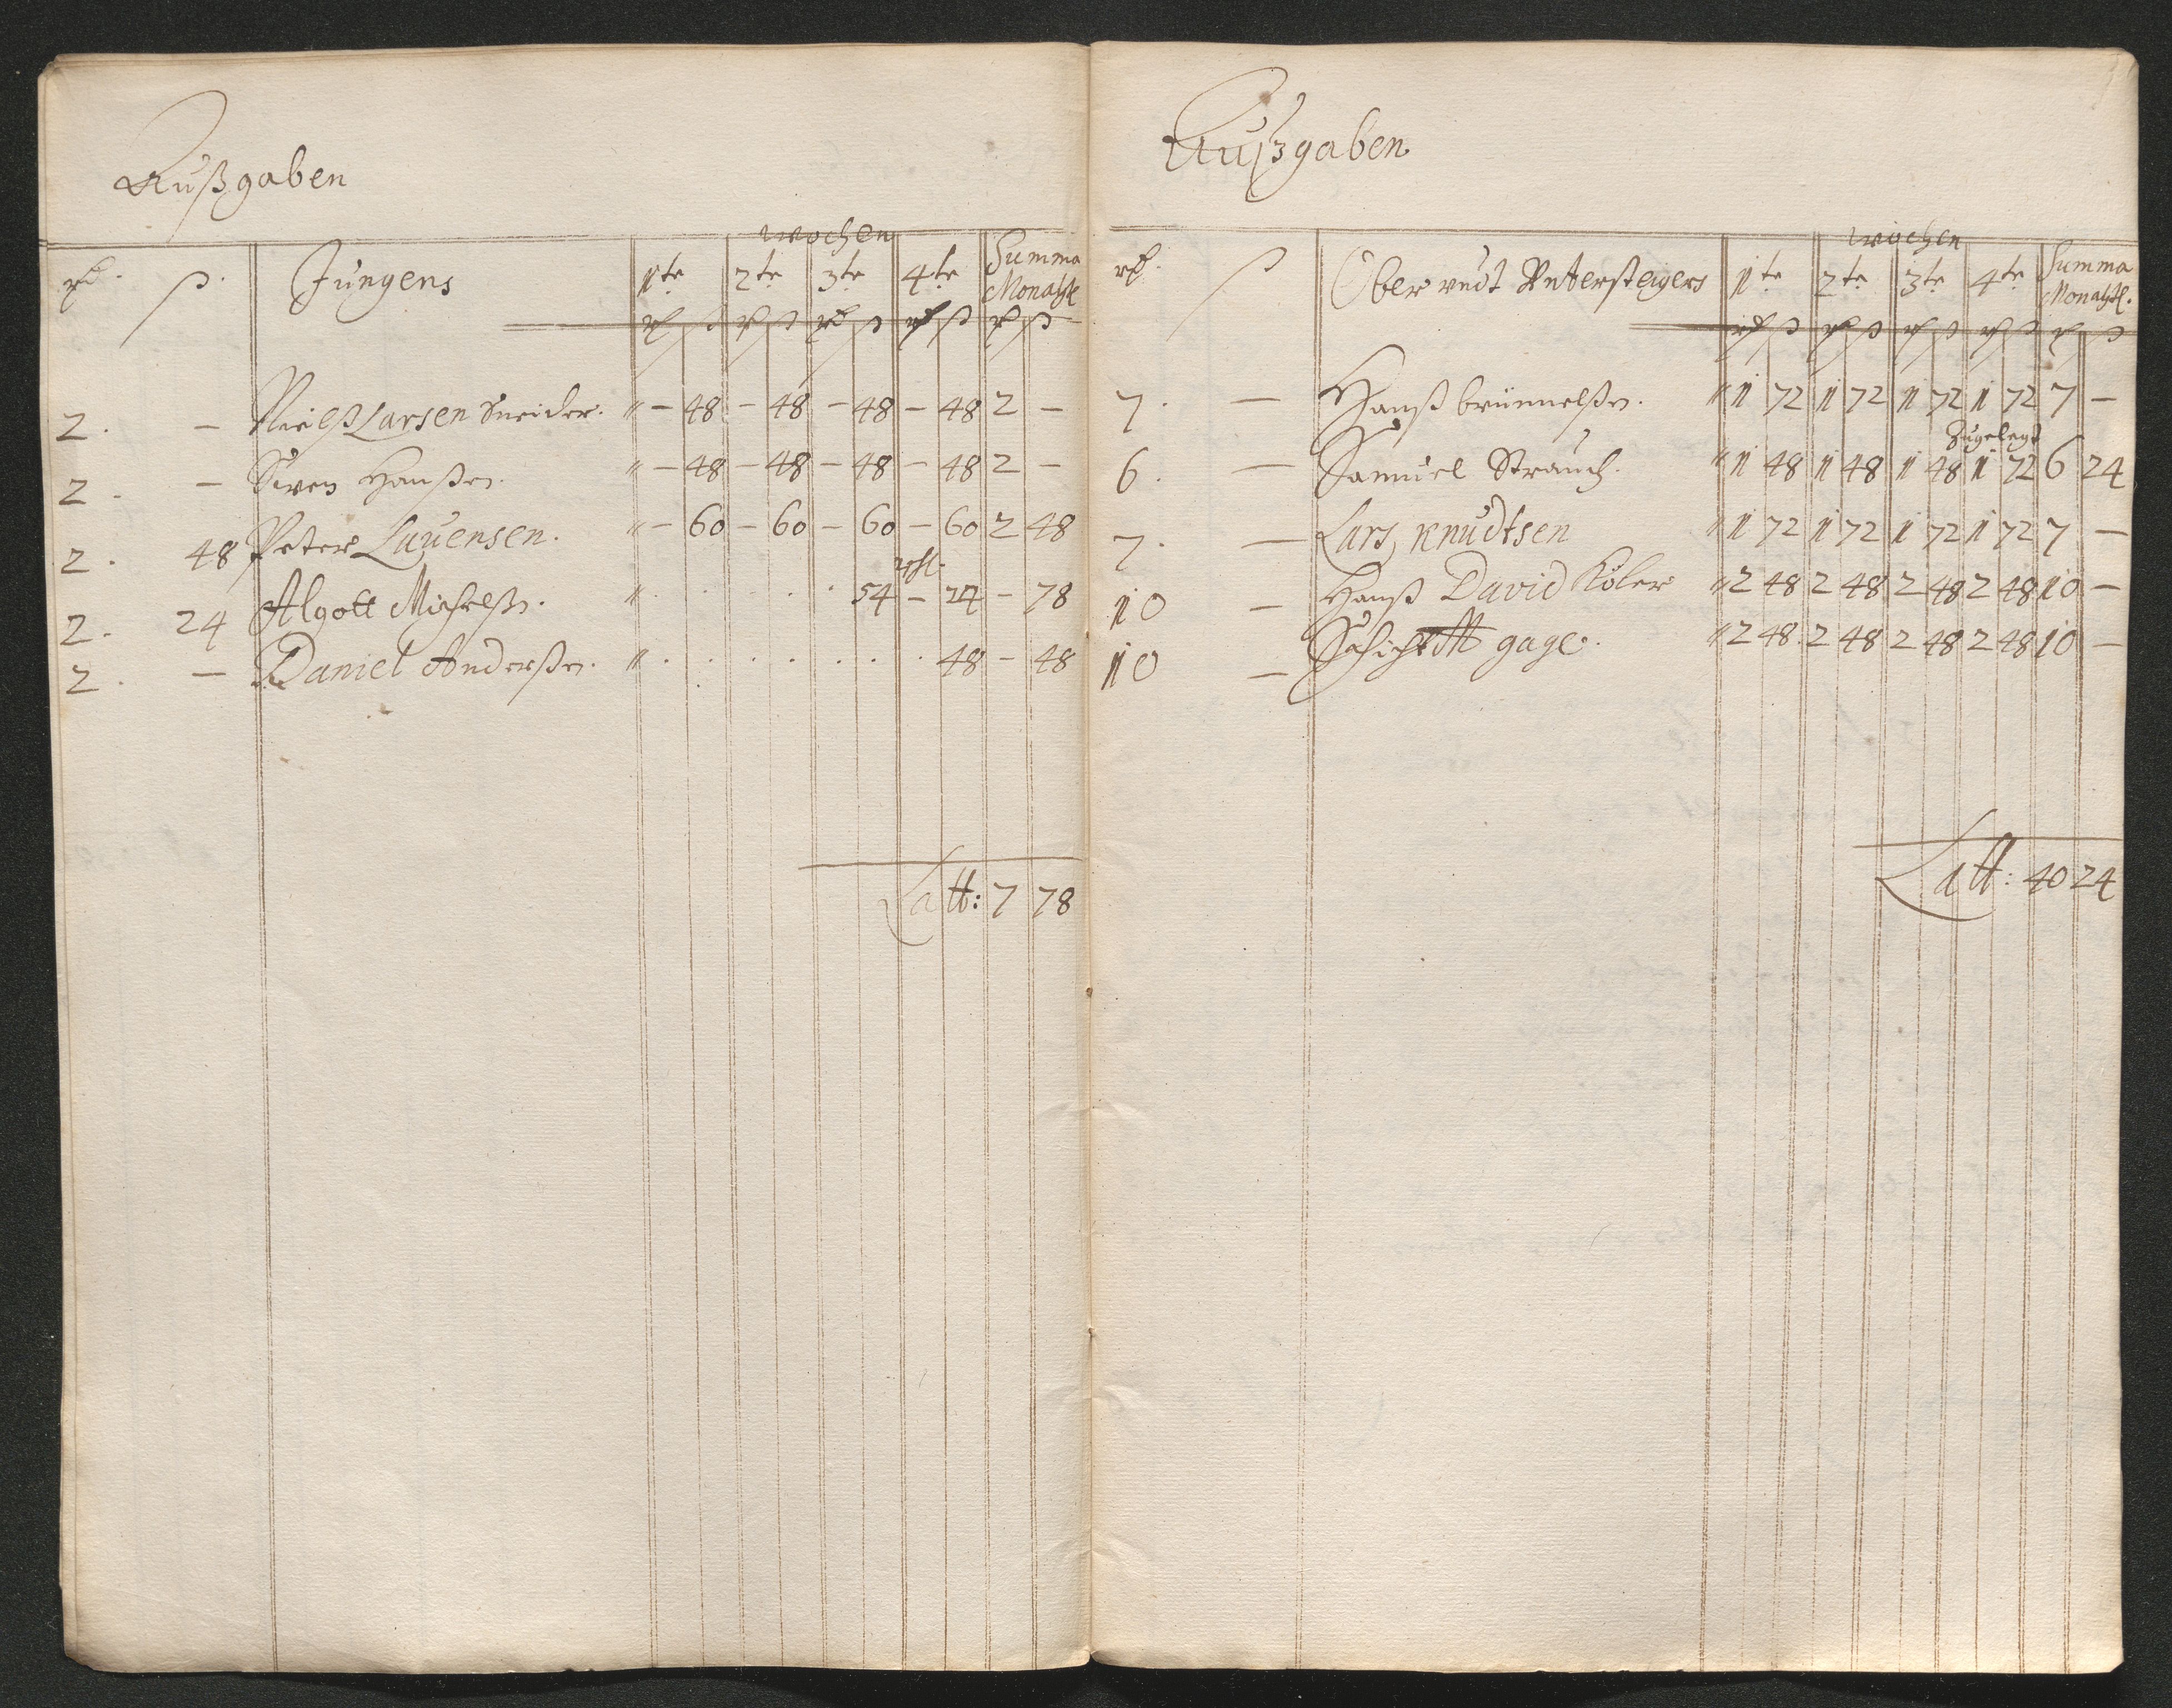 Außgaben
wochen
rd. ß. Jungens 1te 2te 3te 4te Summa
Monatzl
rd ß rd ß rd ß rd ß rd ß
2. — Nielß Larsen Sneider. " — 48 — 48 — 48 — 48 2 —
2. — Swen Hanßen. " — 48 — 48 — 48 — 48 2 —
2. 48 Peter Lauensen. " — 60 — 60 — 60 — 60 2 48
2. 24 Algott Michelßn. " . . . . . 54 — 24 — 78
2. — Daniel Anderßen. " . . . . . . . 48 — 48
Latt: 7 78
Außgaben
wochen
rd. ß Ober undt Untersteigers 1te 2te 3te 4te Summa
Monatzl.
rd ß rd ß rd ß rd ß rd ß
7. — Hanß brünnelßn. " 1 72 1 72 1 72 1 72 7 —
Zugelegt
6. — Samuel Strauch. " 1 48 1 48 1 48 1 72 6 24
7. — Lars Knudtsen " 1 72 1 72 1 72 1 72 7 —
10 — Hanß David Köler " 2 48 2 48 2 48 2 48 10 —
10 — gage. " 2 48. 2 48 2 48 2 48 10 —
Latt: 40 24